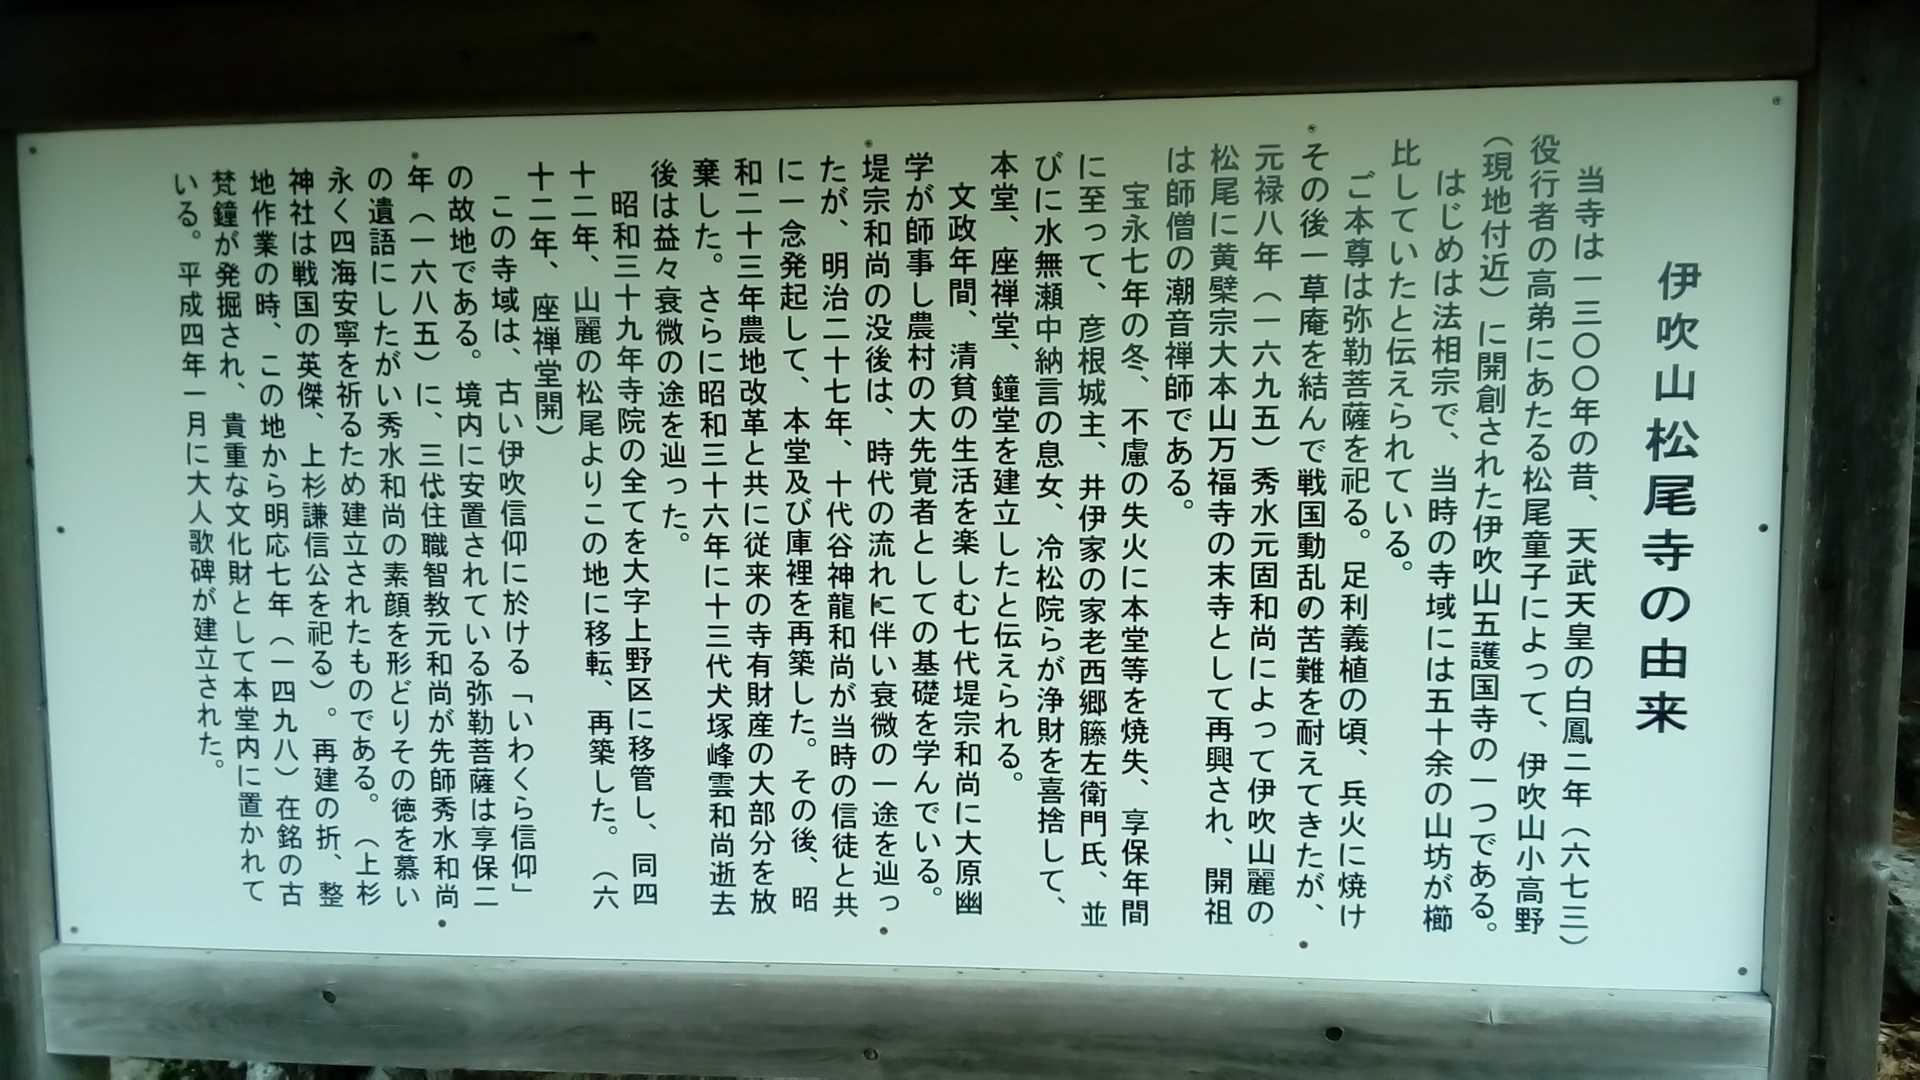 伊吹山松尾寺の由来
当寺は一三〇〇年の昔、天武天皇の白鳳二年（六七三）
役行者の高弟にあたる松尾童子によって、伊吹山小高野
（現地付近）に開創された伊吹山五護国寺の一つである。
はじめは法相宗で、当時の寺域には五十余の山坊が櫛
比していたと伝えられている。
ご本尊は弥勒菩薩を祀る。足利義植の頃、兵火に焼け
その後一草庵を結んで戦国動乱の苦難を耐えてきたが、
元禄八年（一六九五）秀水元固和尚によって伊吹山麗の
松尾に黄檗宗大本山万福寺の末寺として再興され、開祖
は師僧の潮音禅師である。
宝永七年の冬、不慮の失火に本堂等を焼失、享保年間
に至って、彦根城主、井伊家の家老西郷籐左衛門氏、並
びに水無瀬中納言の息女、冷松院らが浄財を喜捨して、
本堂、座禅堂、鐘堂を建立したと伝えられる。
文政年間、清貧の生活を楽しむ七代堤宗和尚に大原幽
学が師事し農村の大先覚者としての基礎を学んでいる。
堤宗和尚の没後は、時代の流れに伴い衰微の一途を辿っ
たが、明治二十七年、十代谷神龍和尚が当時の信徒と共
に一念発起して、本堂及び庫裡を再築した。その後、昭
和二十三年農地改革と共に従来の寺有財産の大部分を放
棄した。さらに昭和三十六年に十三代犬塚峰雲和尚逝去
後は益々衰微の途を辿った。
昭和三十九年寺院の全てを大字上野区に移管し、同四
十二年、山麗の松尾よりこの地に移転、再築した。（六
十二年、座禅堂開）
この寺域は、古い伊吹信仰に於ける「いわくら信仰」
の故地である。境内に安置されている弥勒菩薩は享保二
年（一六八五）に、三代住職智教元和尚が先師秀水和尚
の遺語にしたがい秀水和尚の素顔を形どりその徳を慕い
永く四海安寧を祈るため建立されたものである。（上杉
神社は戦国の英傑、上杉謙信公を祀る）。再建の折、整
地作業の時、この地から明応七年（一四九八）在銘の古
梵鐘が発掘され、貴重な文化財として本堂内に置かれて
いる。平成四年一月に大人歌碑が建立された。